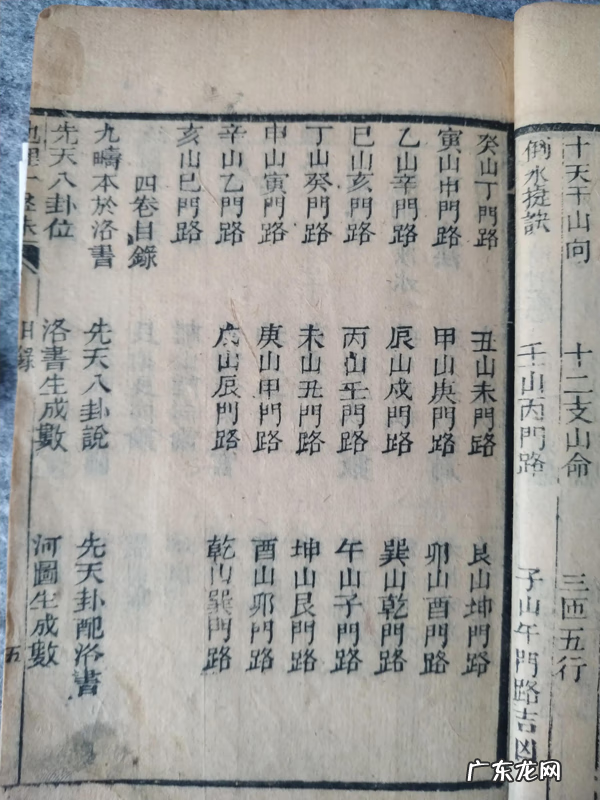 十天干山向 十二支山命 三匝五行
倒水捷訣 壬山丙門路 子山午門路吉凶
癸山丁門路 丑山未門路 艮山坤門路
寅山申門路 甲山庚門路 卯山酉門路
乙山辛門路 辰山戌門路 巽山乾門路
巳山亥門路 丙山壬門路 午山子門路
丁山癸門路 未山丑門路 坤山艮門路
申山寅門路 庚山甲門路 酉山卯門路
辛山乙門路 戌山辰門路 乾山巽門路
亥山巳門路
四卷目錄
九疇本於洛書 先天八卦說 先天卦配洛書
先天八卦位 洛書生成數 河圖生成數
地理 目錄 五
广东龙网